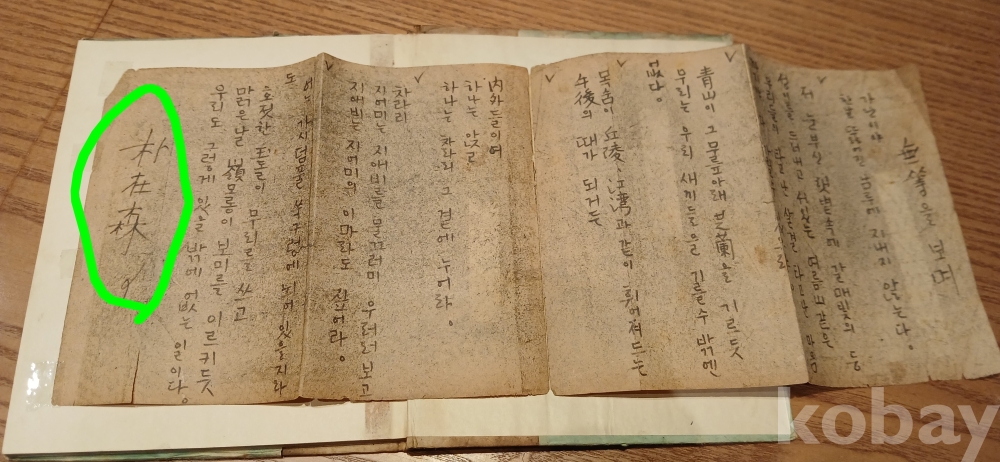 無等을 보며
가난이야
한낱 남루에 지내지 않는다.
저 눈부신 햇볕속에 갈매빛의 등
성이를 드러내고 서있는 여름山같은
青山이 그 무릎아래 芝蘭을 기르듯
우리는 우리 새끼들을 기를수 밖엔
없다.
목숨이 江湾과 같이 휘어져드는
午後의 때가 되거든
内外들이여
하나는 앉고
하나는 차라리 그 곁에 누어라.
차라리
지어미는 지애비를 물끄러미 우러러 보고
지애비는 지어미의 이마라도 짚어라.
어느 가시덤풀 쑥구렁에 뇌어 있을지라
도
호젓한 玉돌이 무리로 쓰고
맑은날 嶺모롱이 보미를 이르키듯
우리도 그렇게 있을 밖에 없는 일이다.
朴在森
kobay